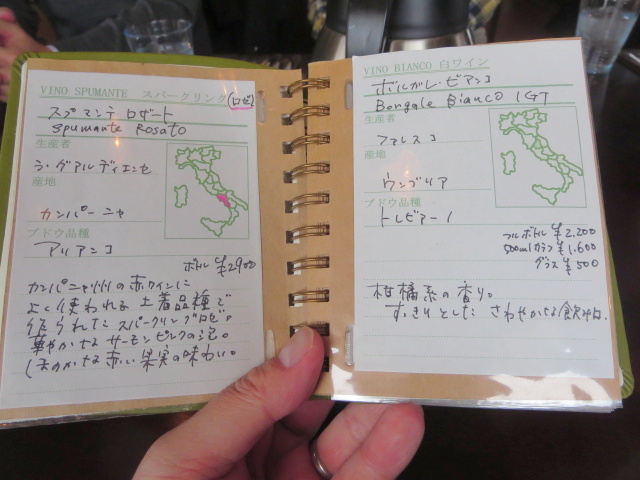 VINO SPUMANTE スパークリング(ロゼ)
スプマンテ ロザート
Spumante Rosato
生産者
ラ・グアルディエンセ
産地
カンパーニャ
ブドウ品種
アリアニコ
ボトル ¥2900
カンパニャ州の赤ワインに
よく使われる土着品種で
作られたスパークリングロゼ。
華やかなサーモンピンクの泡。
ほのかな赤い果実の味わい。
VINO BIANCO 白ワイン
ボルガレ・ビアンコ
Borgale Bianco IGT
生産者
ファレスコ
産地
ウンブリア
ブドウ品種
トレビアーノ
フルボトル ¥2,200
500mlカラフ ¥1,600
グラス ¥500
柑橘系の香り。
すっきりとした さわやかな飲み口.